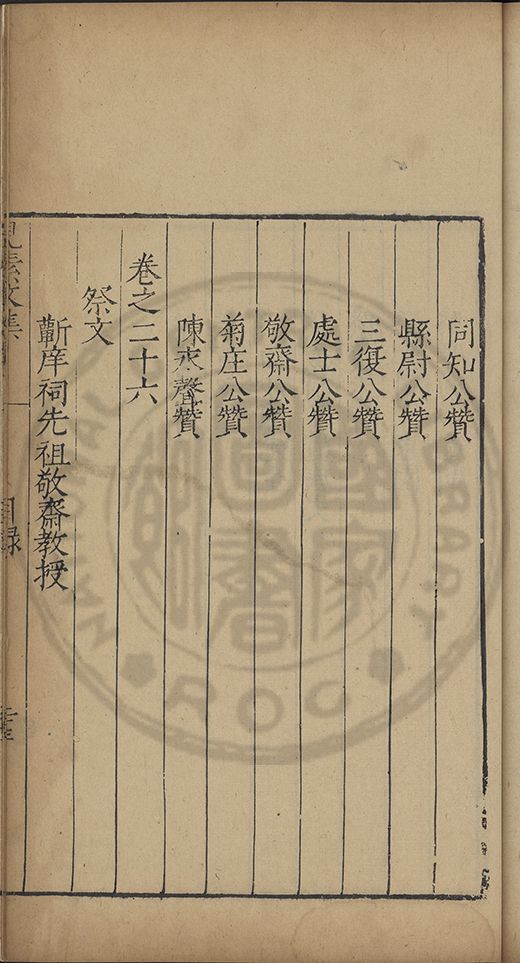 同知公贊
縣尉公贊
三復公贊
處士公贊
敬齋公贊
菊庄公贊
陳永聲贊
卷之二十六
祭文
蘄庠祠先祖敬齋教授
見素文集
目錄